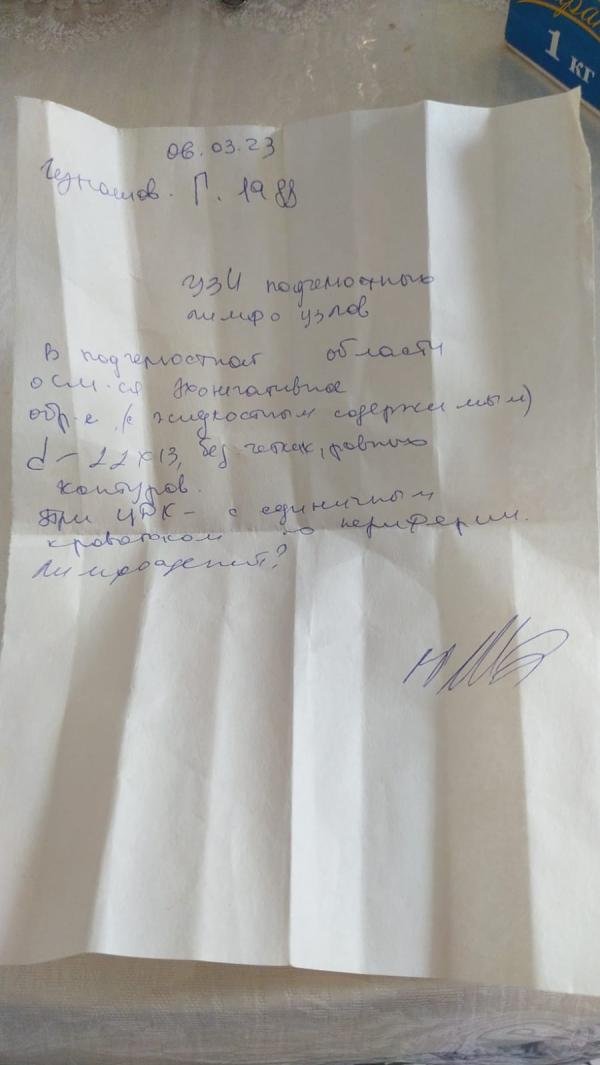 1 кг
06.03.23
П. 1988
УЗИ подчелюстных
лимфо узлов
В подчелюстной области
осм-ся эхонегативное
обр-е (с жидкостным содержимым)
d - 22х13, без четких, ровных
контуров.
При ЦДК - с единичным
кровотоком по периферии.
Лимфоаденит?